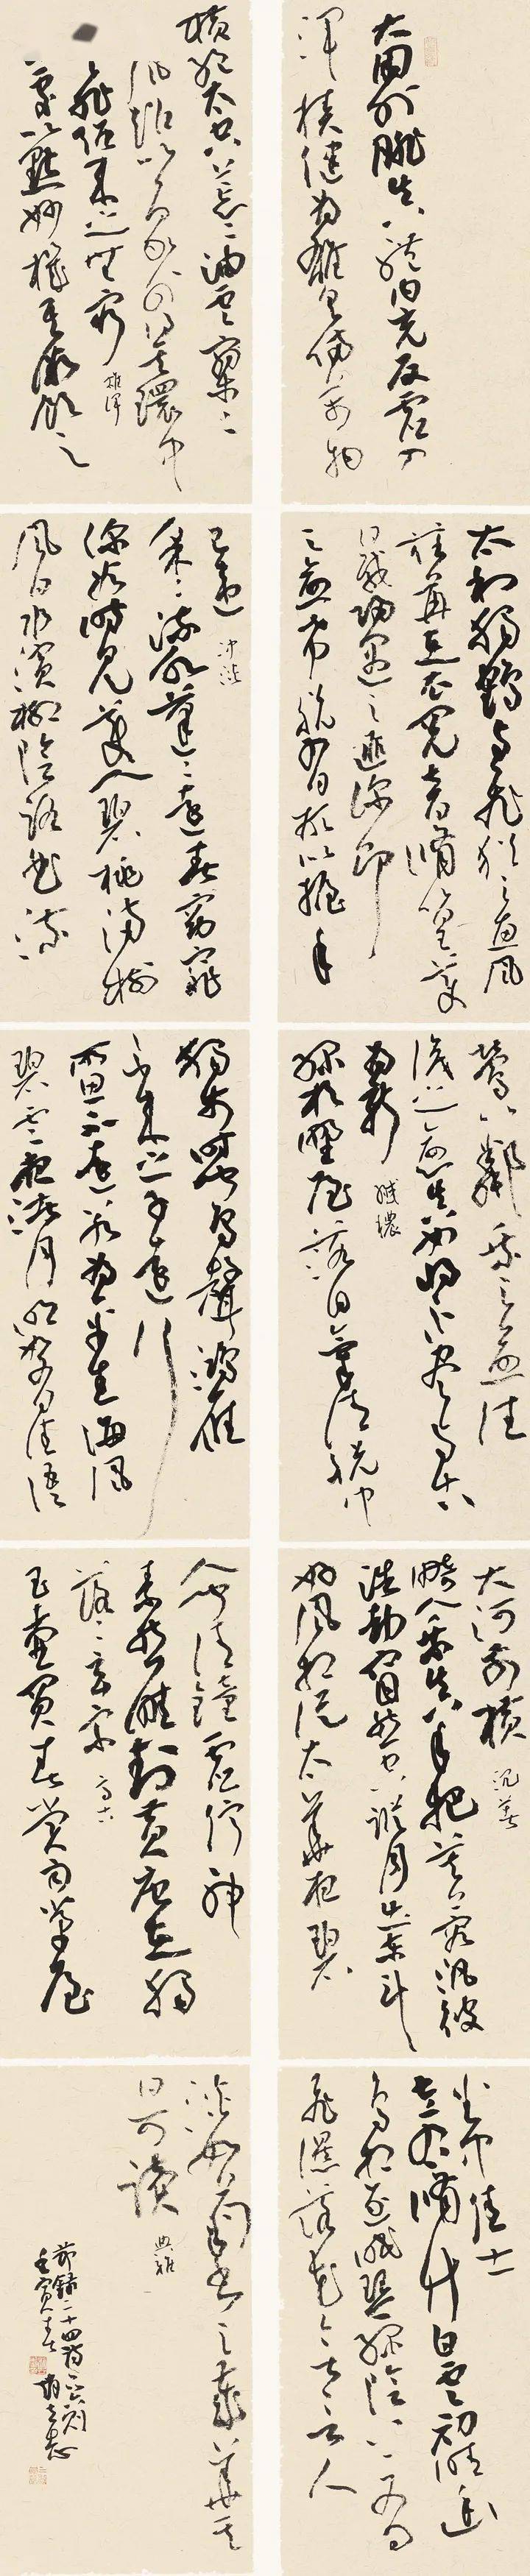 大用外腓真體內充反虛入
渾積健為雄具備萬物
橫絕太空荒荒油雲寥寥
風超以象外得其環中
來之無窮
雄渾
素處以默妙機其微飲之
太和獨鶴與飛猶之惠風
荏苒在衣閱音修篁美
曰載歸遇之匪深即
之愈希脫有形似握手
已違
沖淡
采采流水蓬蓬遠春窈窕
深谷時見美人碧桃滿樹
風日水濱柳陰路曲流
鶯比鄰乘之愈往
識之愈真如將不盡與古
為新
纖穠
綠杉野屋落日氣清脫巾
獨步時聞鳥聲鴻雁
不來之子遠行
所思不遠若為平生海風
碧雲夜渚月明如有佳語
大河前橫
沉著
畸人乘真手把芙蓉汎彼
浩劫窅然空蹤月出東斗
好風相從太華夜碧
人聞清鐘虛佇神
素脫然畦封黃唐在獨
落落玄宗
高古
玉壺買春賞雨茅屋
坐中佳士
左右修竹白雲初晴幽
鳥相逐眠琴綠陰上有
飛瀑落花無言人
淡如菊書之歲華其
曰可讀
典雅
前錄二十四詩品六則
壬寅春